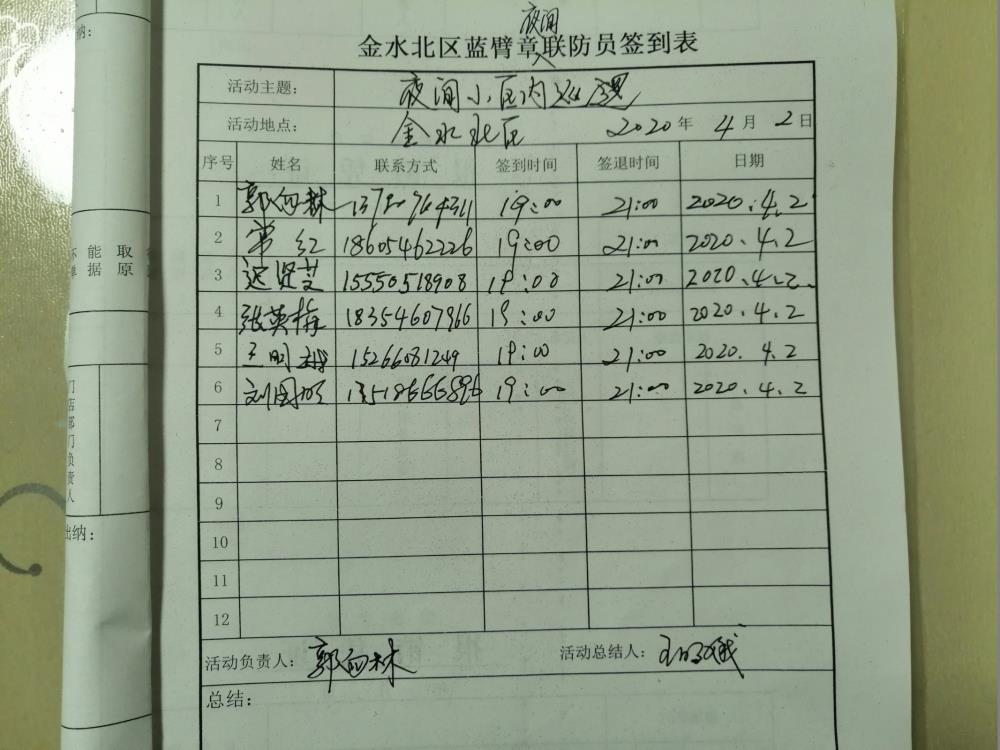 夜间
金水北区蓝臂章联防员签到表
活动主题: 夜间小区内巡逻
活动地点: 金水北区 2020年4月2日
序号 姓名 联系方式 签到时间 签退时间 日期
1 郭向林 19:00 21:00 2020.4.2
2 常红 18605462226 19:00 21:00 2020.4.2
3 迟贤芝 15550518908 19:00 21:00 2020.4.2.
4 张英梅 18354607966 19:00 21:00 2020.4.2
5 王明 15266081249 19:00 21:00 2020.4.2
6 刘国 13518666896 19:00 21:00 2020.4.2
7
8
9
10
11
12
活动负责人: 郭向林 活动总结人: 王明
总结:
纳:
能 取
据 原
门店部门负责人
出纳: